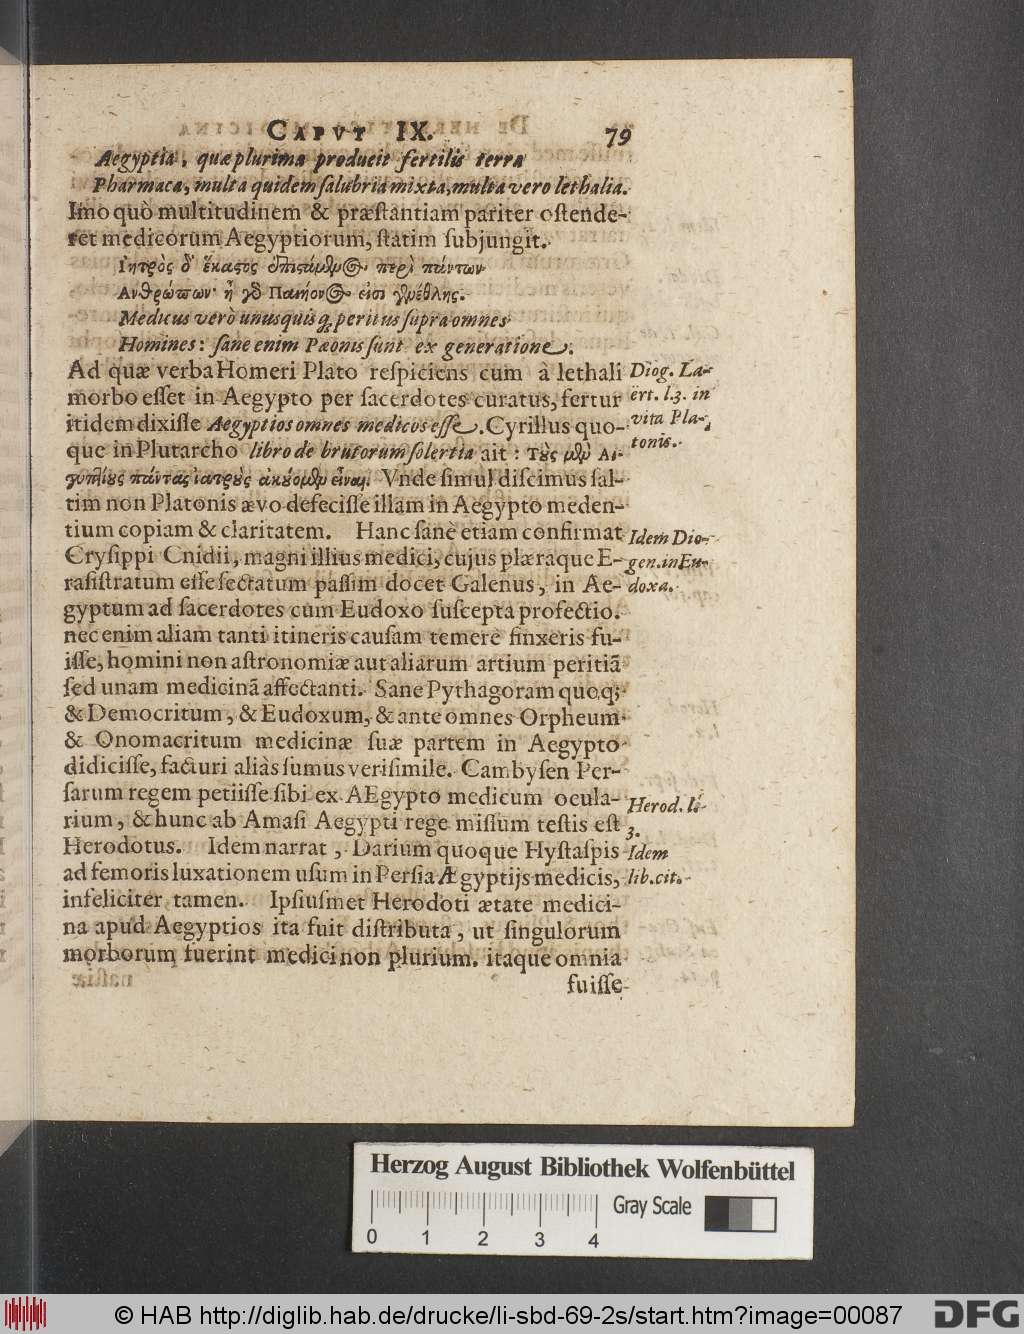 CAPVT IX. 79
Aegyptia, quæ plurima producit fertilis terra
Pharmaca, multa quidem ſalubria mixta, multa vero lethalia.
Imo quò multitudinem & præſtantiam pariter oſtende-
ret medicorum Aegyptiorum, ſtatim ſubjungit.
Ἰητρὸς δ' ἕκαστος ἐπιστάμενος περὶ πάντων
Ανθρώπων· ἦ γὸ Παιήονος εἰσι γενέθλης.
Medicus verò unusquisq; peritus ſupra omnes
Homines: ſane enim Pæonis ſunt ex generatione.
Ad quæ verba Homeri Plato reſpiciens cum à lethali
Diog. La-
morbo eſſet in Aegypto per ſacerdotes curatus, fertur
ërt. l.3. in
itidem dixiſſe Aegyptios omnes medicos eſſe. Cyrillus quo-
vita Pla-
que in Plutarcho libro de brutorum ſolertia ait: Τοὺς μὲν Αἰ-
tonis.
γυπτίους πάντας ἰατροὺς ἀκούομεν εἶναι. Vnde ſimul diſcimus ſal-
tim non Platonis ævo defeciſſe illam in Aegypto meden-
tium copiam & claritatem. Hanc ſanè etiam confirmat
Idem Dio-
Cryſippi Cnidii, magni illius medici, cujus plæraque E-
gen. in Eu-
raſiſtratum eſſe ſectatum paſſim docet Galenus, in Ae-
doxa.
gyptum ad ſacerdotes cum Eudoxo ſuſcepta profectio.
nec enim aliam tanti itineris cauſam temerè finxeris fu-
iſſe, homini non aſtronomiæ aut aliarum artium peritiã
ſed unam medicinã affectanti. Sane Pythagoram quoq;
& Democritum, & Eudoxum, & ante omnes Orpheum
& Onomacritum medicinæ ſuæ partem in Aegypto
didiciſſe, facturi aliàs ſumus veriſimile. Cambyſen Per-
ſarum regem petiiſſe ſibi ex AEgypto medicum ocula-
Herod. li-
rium, & hunc ab Amaſi Aegypti rege miſſum teſtis eſt
3.
Herodotus. Idem narrat, Darium quoque Hyſtaſpis
Idem
ad femoris luxationem uſum in Perſia Ægyptijs medicis,
lib. cit.
infeliciter tamen. Ipſiuſmet Herodoti ætate medici-
na apud Aegyptios ita fuit diſtributa, ut ſingulorum
morborum fuerint medici non plurium. itaque omnia
fuiſſe
Herzog August Bibliothek Wolfenbüttel
Gray Scale
0 1 2 3 4
© HAB http://diglib.hab.de/drucke/li-sbd-69-2s/start.htm?image=00087
DFG